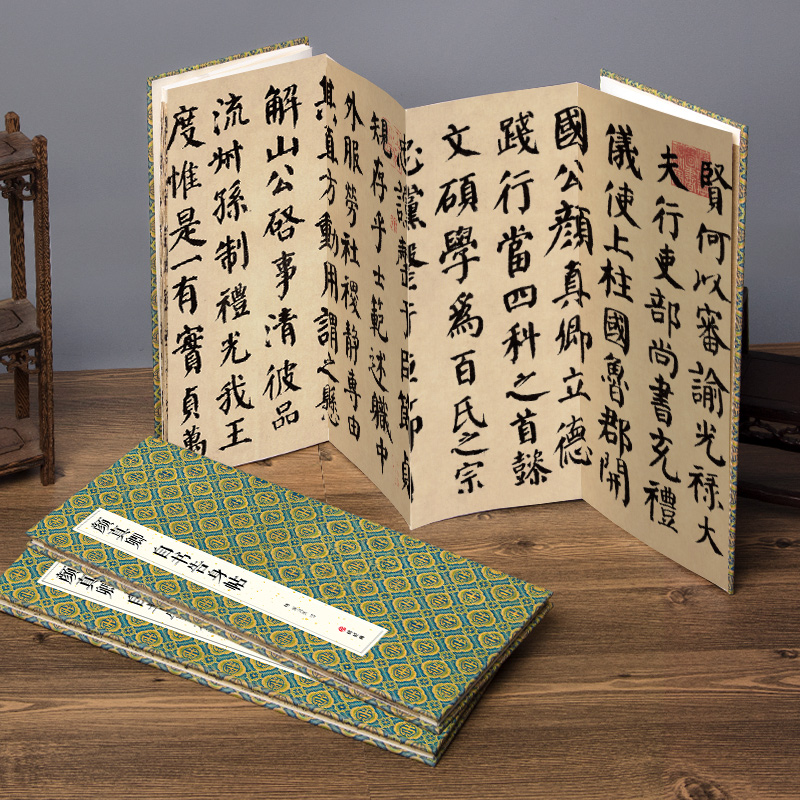 賢何以審諭光祿大
夫行吏部尚書充禮
儀使上柱國魯郡開
國公顏真卿立德
踐行當四科之首懿
文碩學為百氏之宗
忠讜罄于臣節貞
規存乎士範述軄中
外服勞社稷靜專由
其直方動用謂之懸
解山公啓事清彼品
流叔孫制禮光我王
度惟是一有實貞萬
颜真卿 自书告身帖
颜真卿 自书